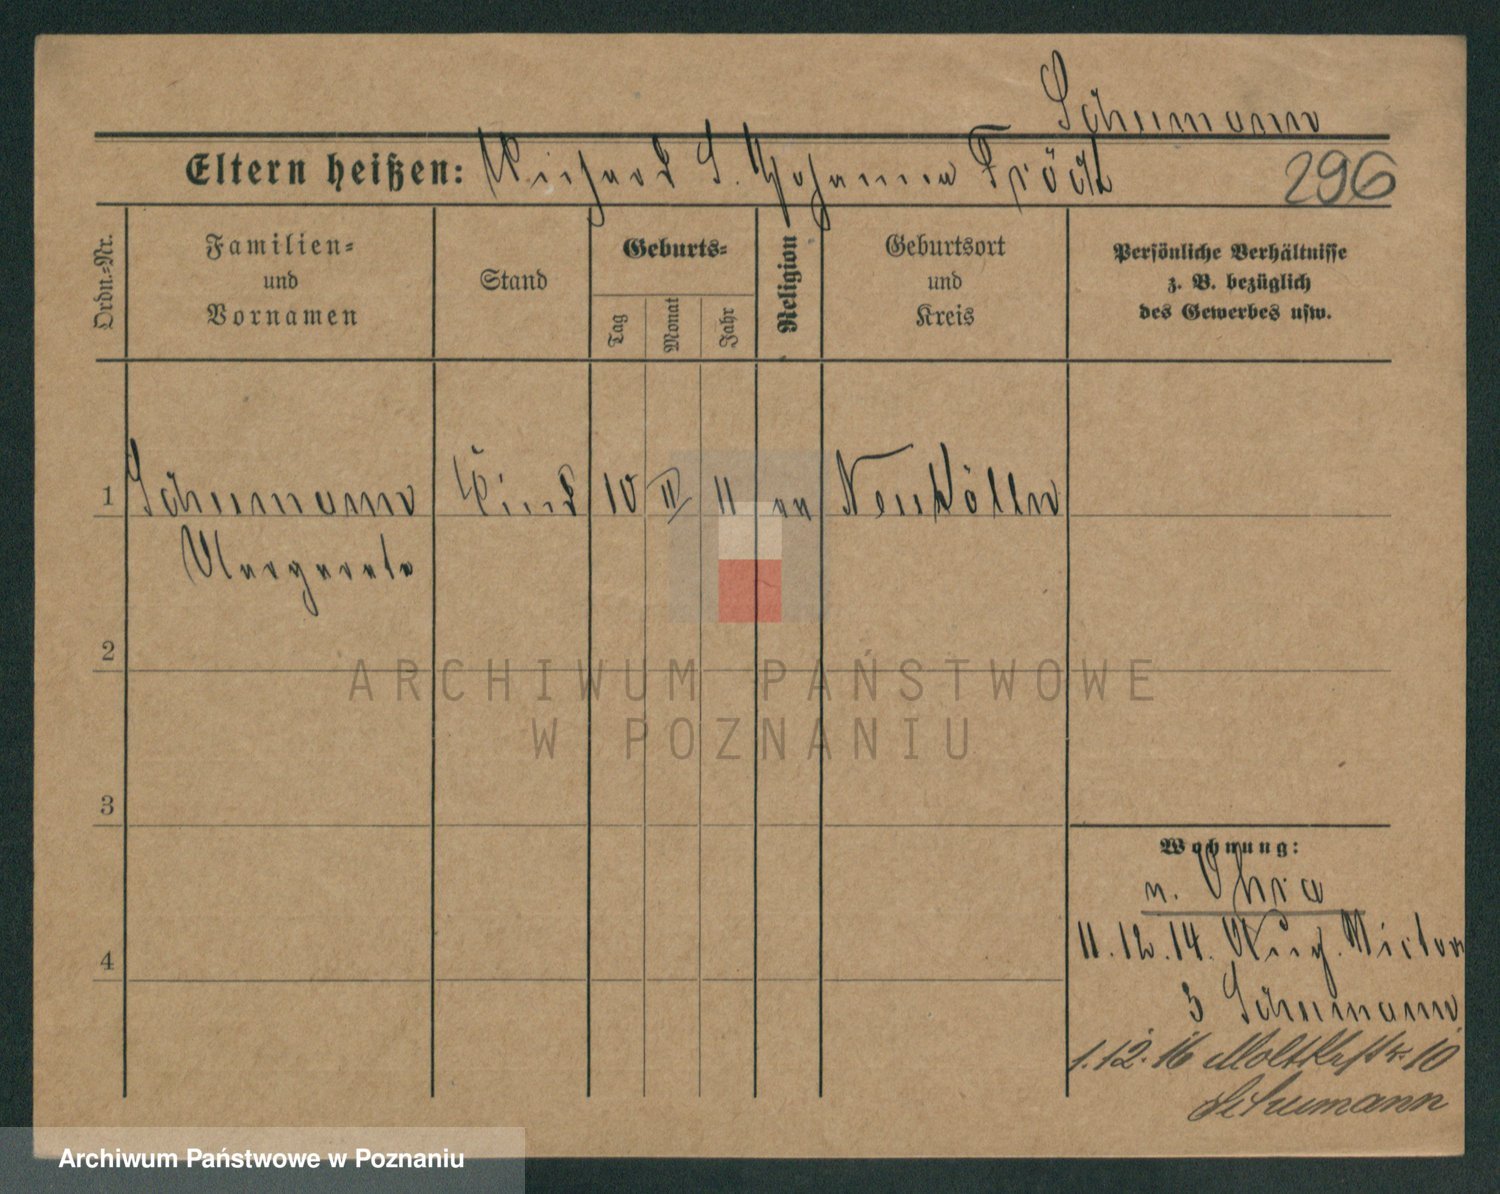 Schumann
Eltern heißen: Richard S. Johanna Trödt
296
Ordn.=Nr.
Familien=
und
Vornamen
Stand
Geburts=
Tag
Monat
Jahr
Religion
Geburtsort
und
Kreis
Persönliche Verhältnisse
z. B. bezüglich
des Gewerbes usw.
1 Schumann Kind 10 II 11 Neukölln
Margarete
2
ARCHIWUM PAŃSTWOWE
W POZNANIU
3
Wohnung:
n. Ohra
4
11.12.14. Aug. Victor
3 Schumann
1.12.16 Moltkestr. 10
Schumann
Archiwum Państwowe w Poznaniu